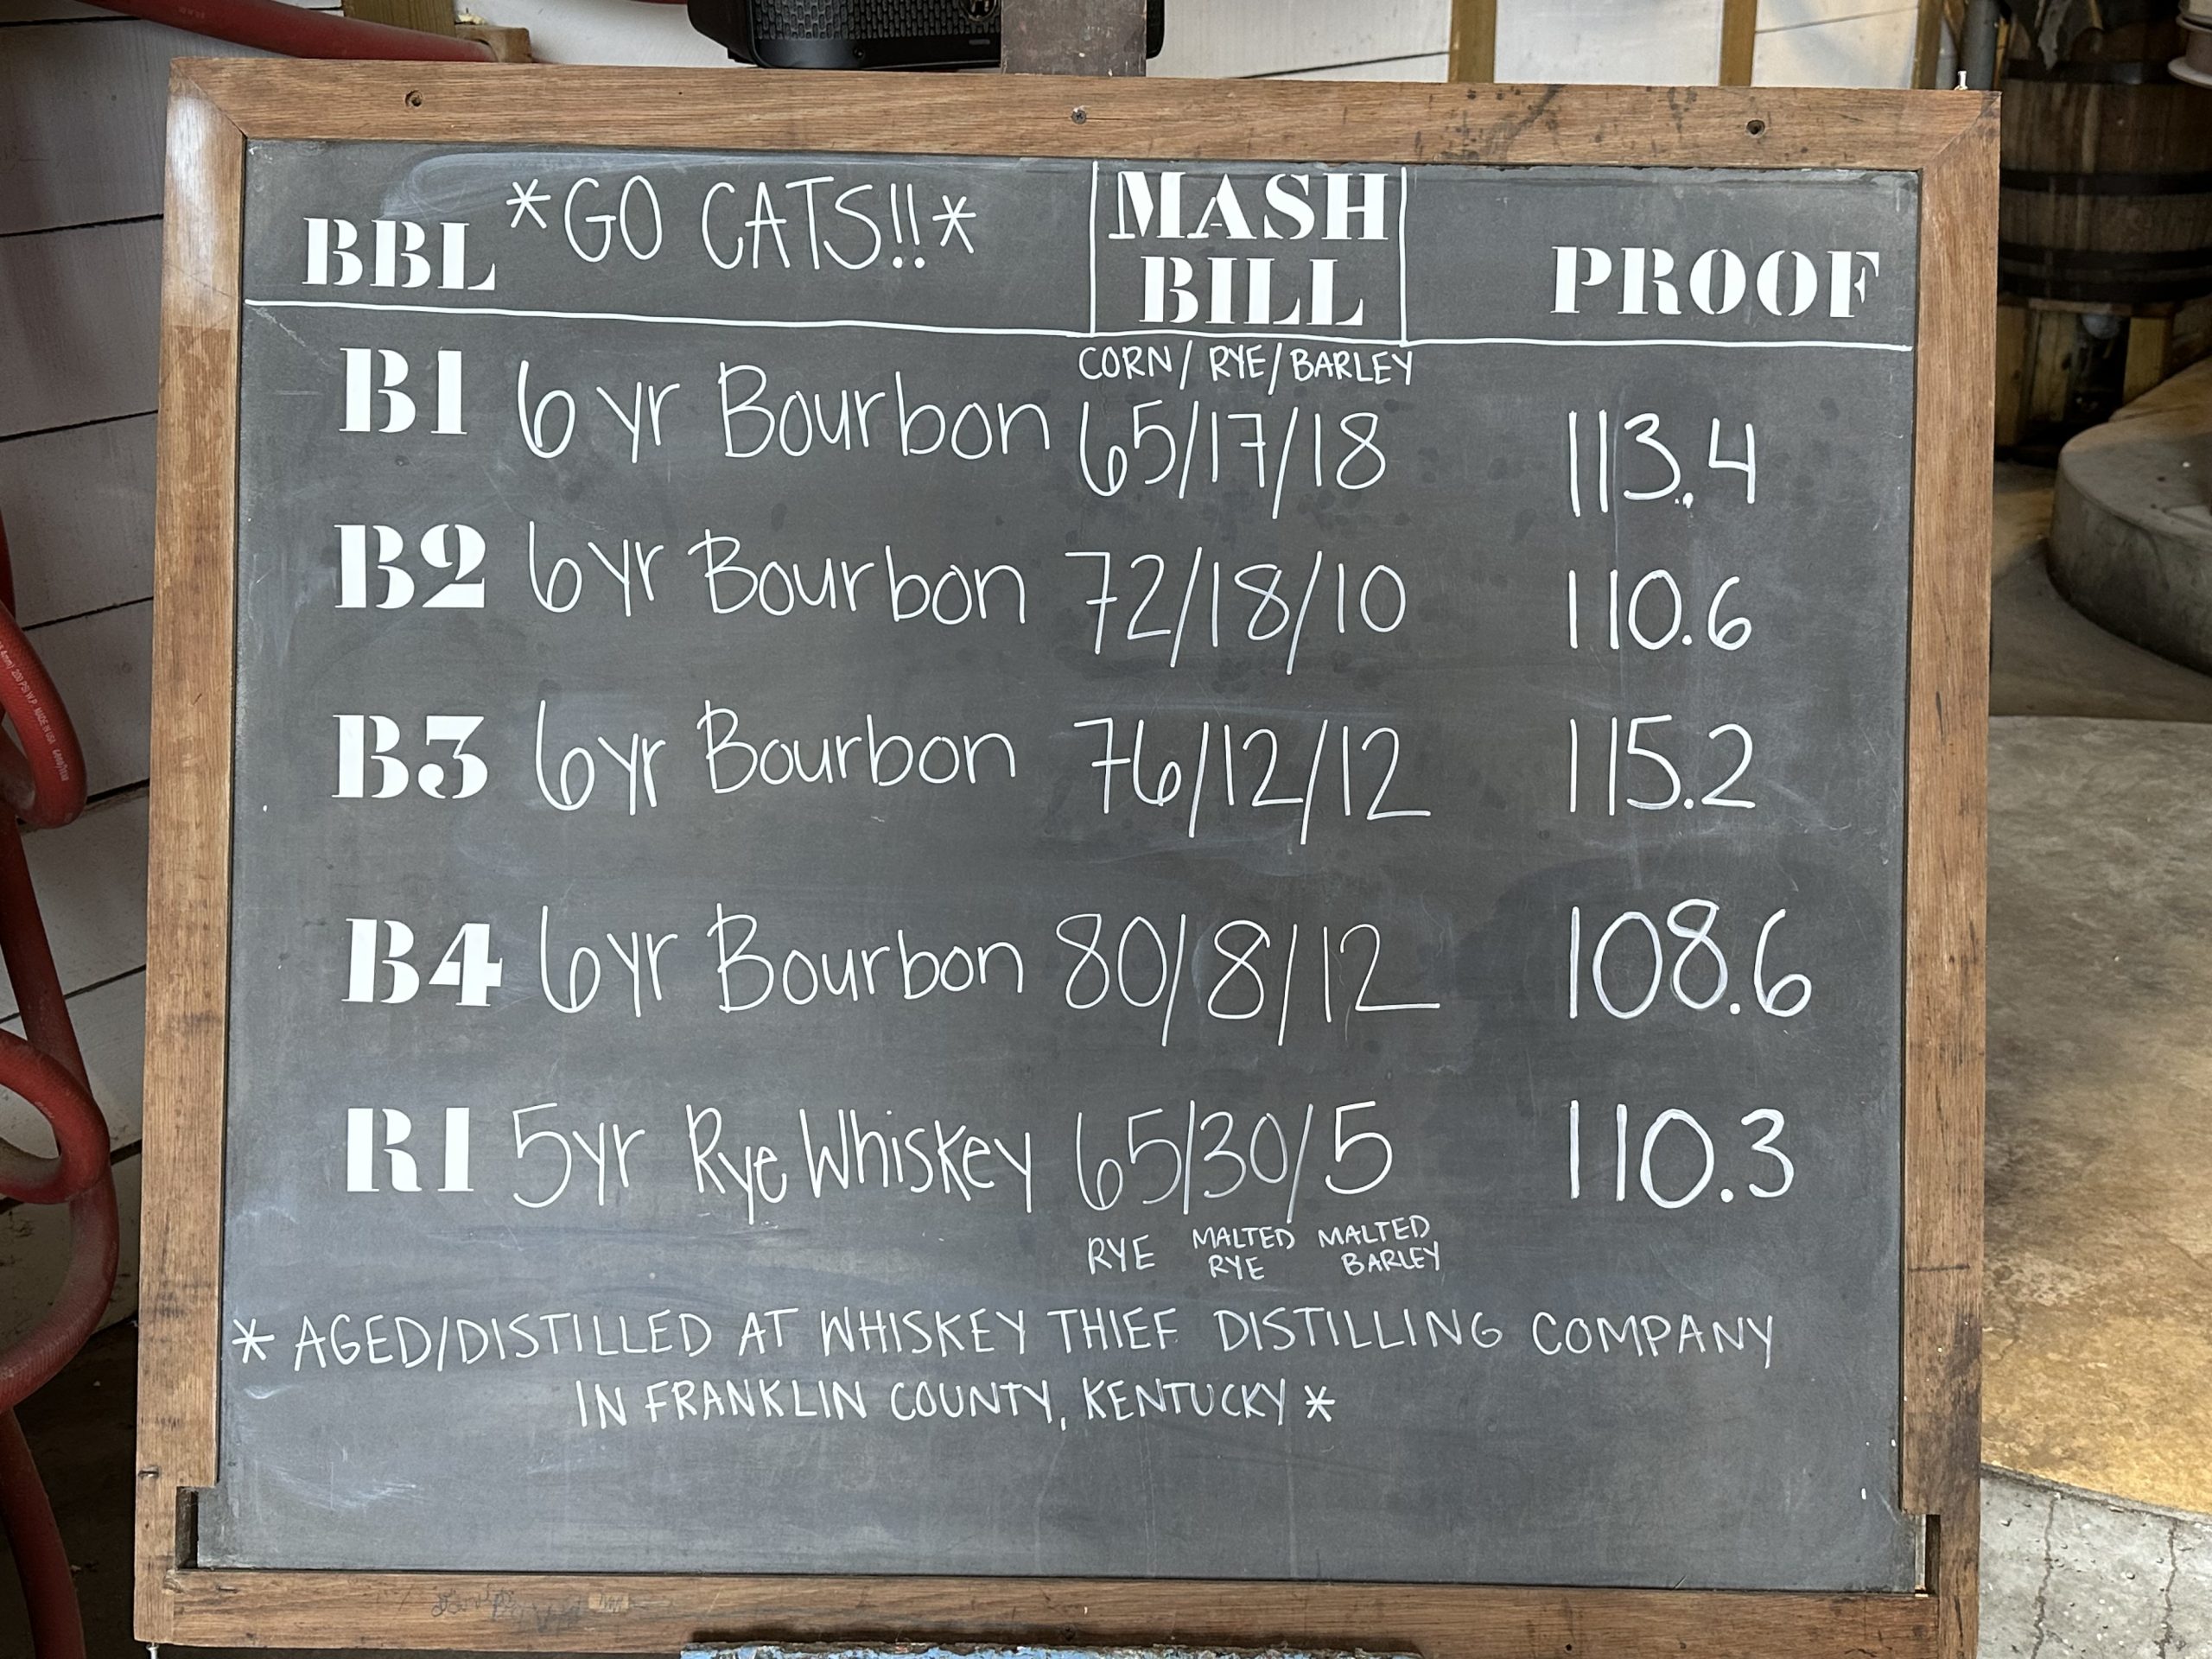 BBL *GO CATS!!* MASH BILL PROOF
CORN/ RYE/ BARLEY
B1 6 yr Bourbon 65/17/18 113.4
B2 6 yr Bourbon 72/18/10 110.6
B3 6 yr Bourbon 76/12/12 115.2
B4 6 yr Bourbon 80/8/12 108.6
R1 5 yr Rye Whiskey 65/30/5 110.3
RYE MALTED RYE MALTED BARLEY
* AGED/DISTILLED AT WHISKEY THIEF DISTILLING COMPANY
IN FRANKLIN COUNTY, KENTUCKY *